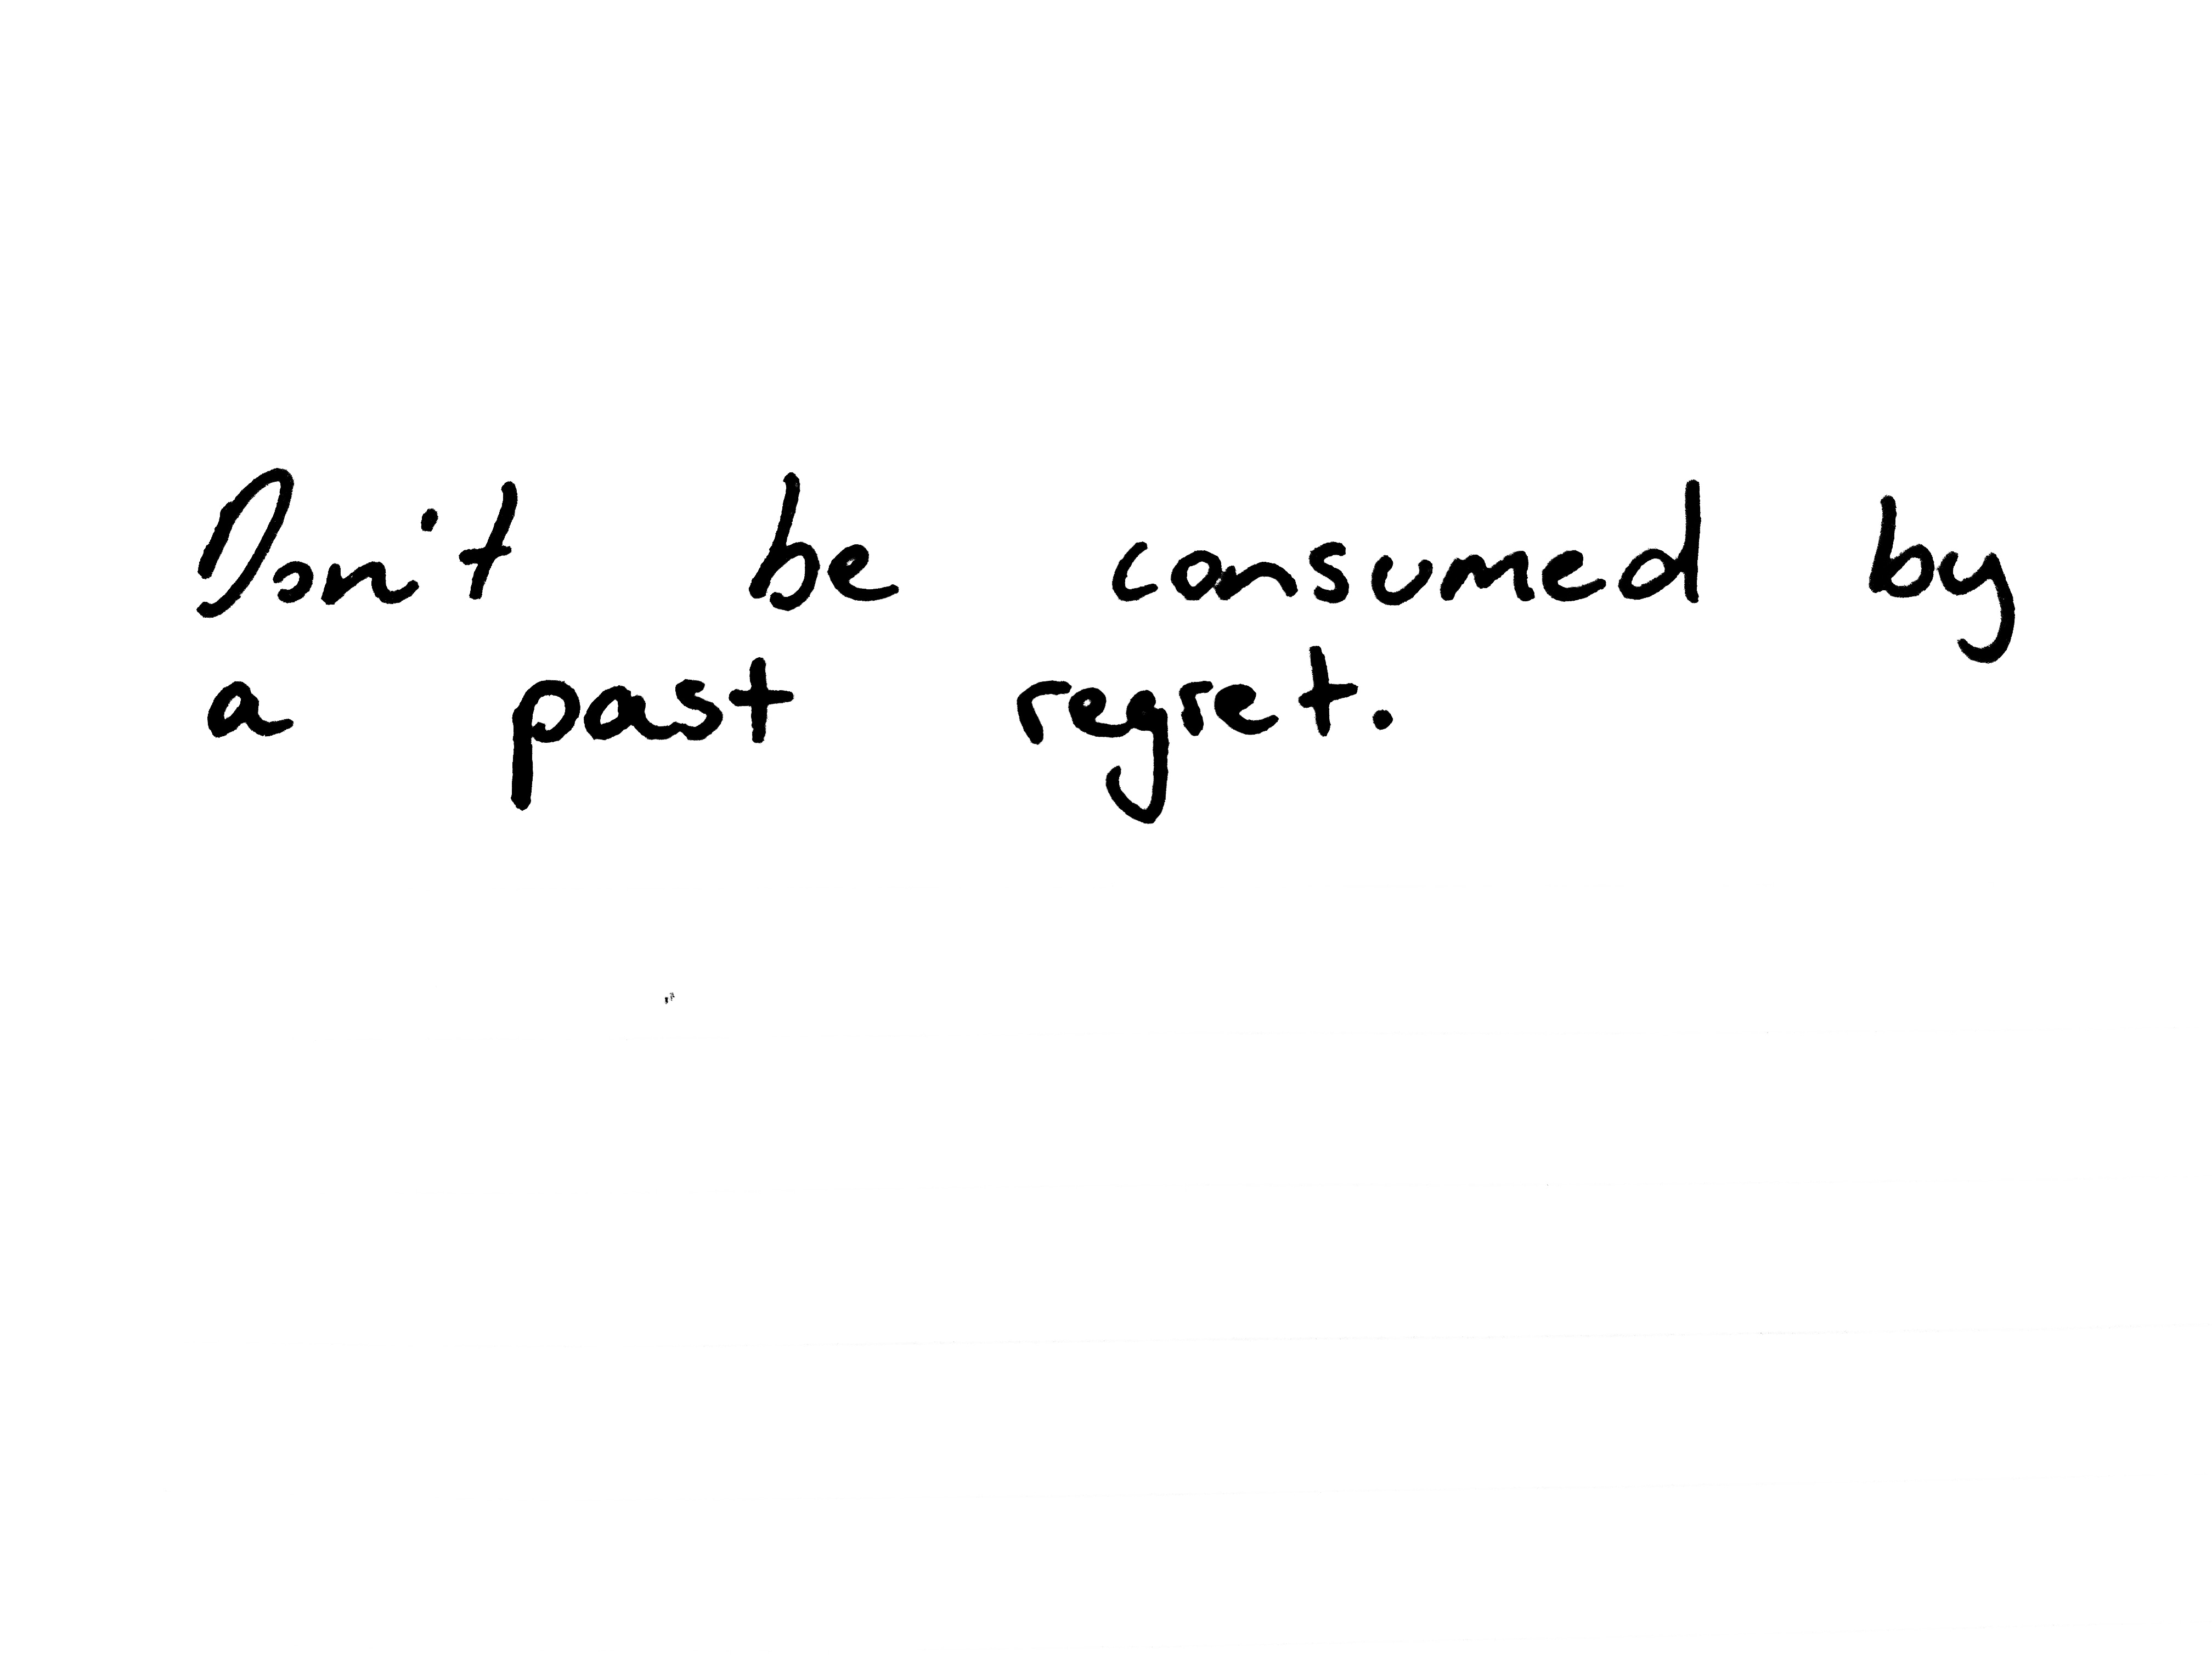 Don't be consumed by
a past regret.